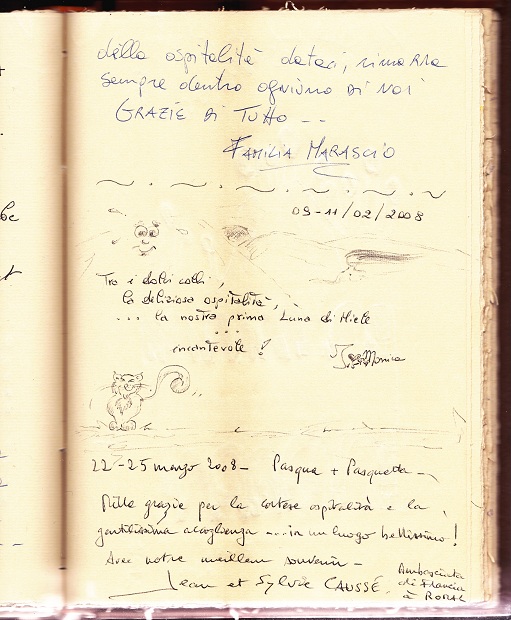 della ospitalità dataci, rimarrà
sempre dentro ogniuno di noi
GRAZIE DI TUTTO --
FAMILIA MARASCIO
09-11/02/2008
Tra i dolci colli,
la deliziosa ospitalità,
... la nostra prima Luna di Miele
...
incantevole!
Monica
22-25 marzo 2008- Pasqua + Pasquetta -
Mille grazie per la cortese ospitalità e la
gentilissima accoglienza ... in un luogo bellissimo!
Avec notre meilleur souvenir -
Jean et Sylvie CAUSSE.
Ambasciata
di Francia
à ROMA